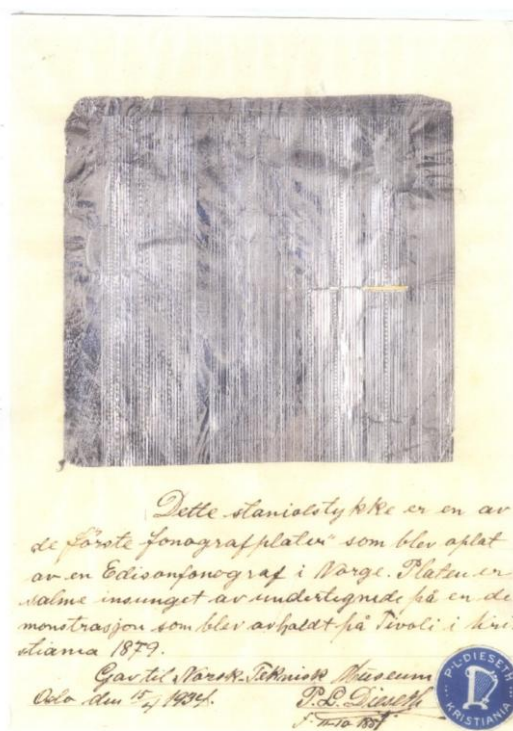 Dette staniolstykke er en av
de første fonografplater" som blev optat
av en Edisonfonograf i Norge. Platen er
salme insunget av undertegnede på en de
monstrasjon som blev avholdt på Tivoli i Kri
stiania 1879.
Gav til Norsk Teknisk Museum
Oslo den 15/4 1934.
P.L. Dieseth
P.L. DIESETH
KRISTIANIA